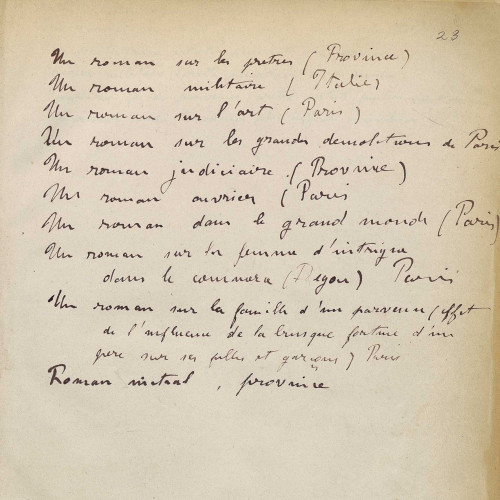 23
Un roman sur les pretres (Province)
Un roman militaire (Italie)
Un roman sur l'art (Paris)
Un roman sur les grandes demolitions de Paris
Un roman judiciaire. (Province)
Un roman ouvrier (Paris
Un roman dans le grand monde (Paris)
Un roman sur la femme d'intrigue
dans le commerce ( ) Paris
Un roman sur la famille d'un parvenu (effet
de l'influence de la brusque fortune d'un
père sur ses filles et garçons) Paris
Roman initial, province